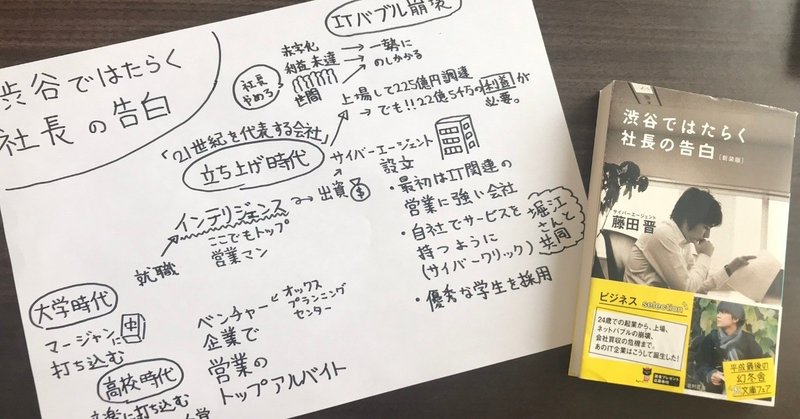 渋谷ではたらく
社長の告白
ITバブル崩壊
赤字化
利益未達
→一勢に
→のしかかる
社長
やめろ
世間
上場して225億円調達
→でも!!22億5千万の利益が
必要。
「21世紀を代表する会社」
立ち上げ時代
サイバーエージェント
設立
インテリジェンス
→出資
$
ここでもトップ
営業マン
就職
・最初はIT関連の
営業に強い会社
・自社でサービスを
持つように
(サイバークリック)
堀江
さんと
共同
・優秀な学生を採用
大学時代
マージャンに
打ち込む
中
ベンチャー
企業で
営業の
トップアルバイト
オックス
プランニング
センター
高校時代
音楽に打ち込む
渋谷ではたらく
社長の告白
[新装版]
サイバーエージェント
藤田 晋
ビジネス selection
24歳での起業から、上場、
ネットバブルの崩壊、
会社買収の危機まで。
あのIT企業はこうして誕生した!
平成最後の
幻冬舎
文庫フェア